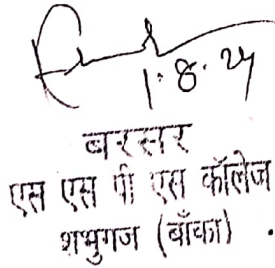 1.8.24
बरसर
एस एस पी एस कॉलेज
शंभुगज (बाँका)